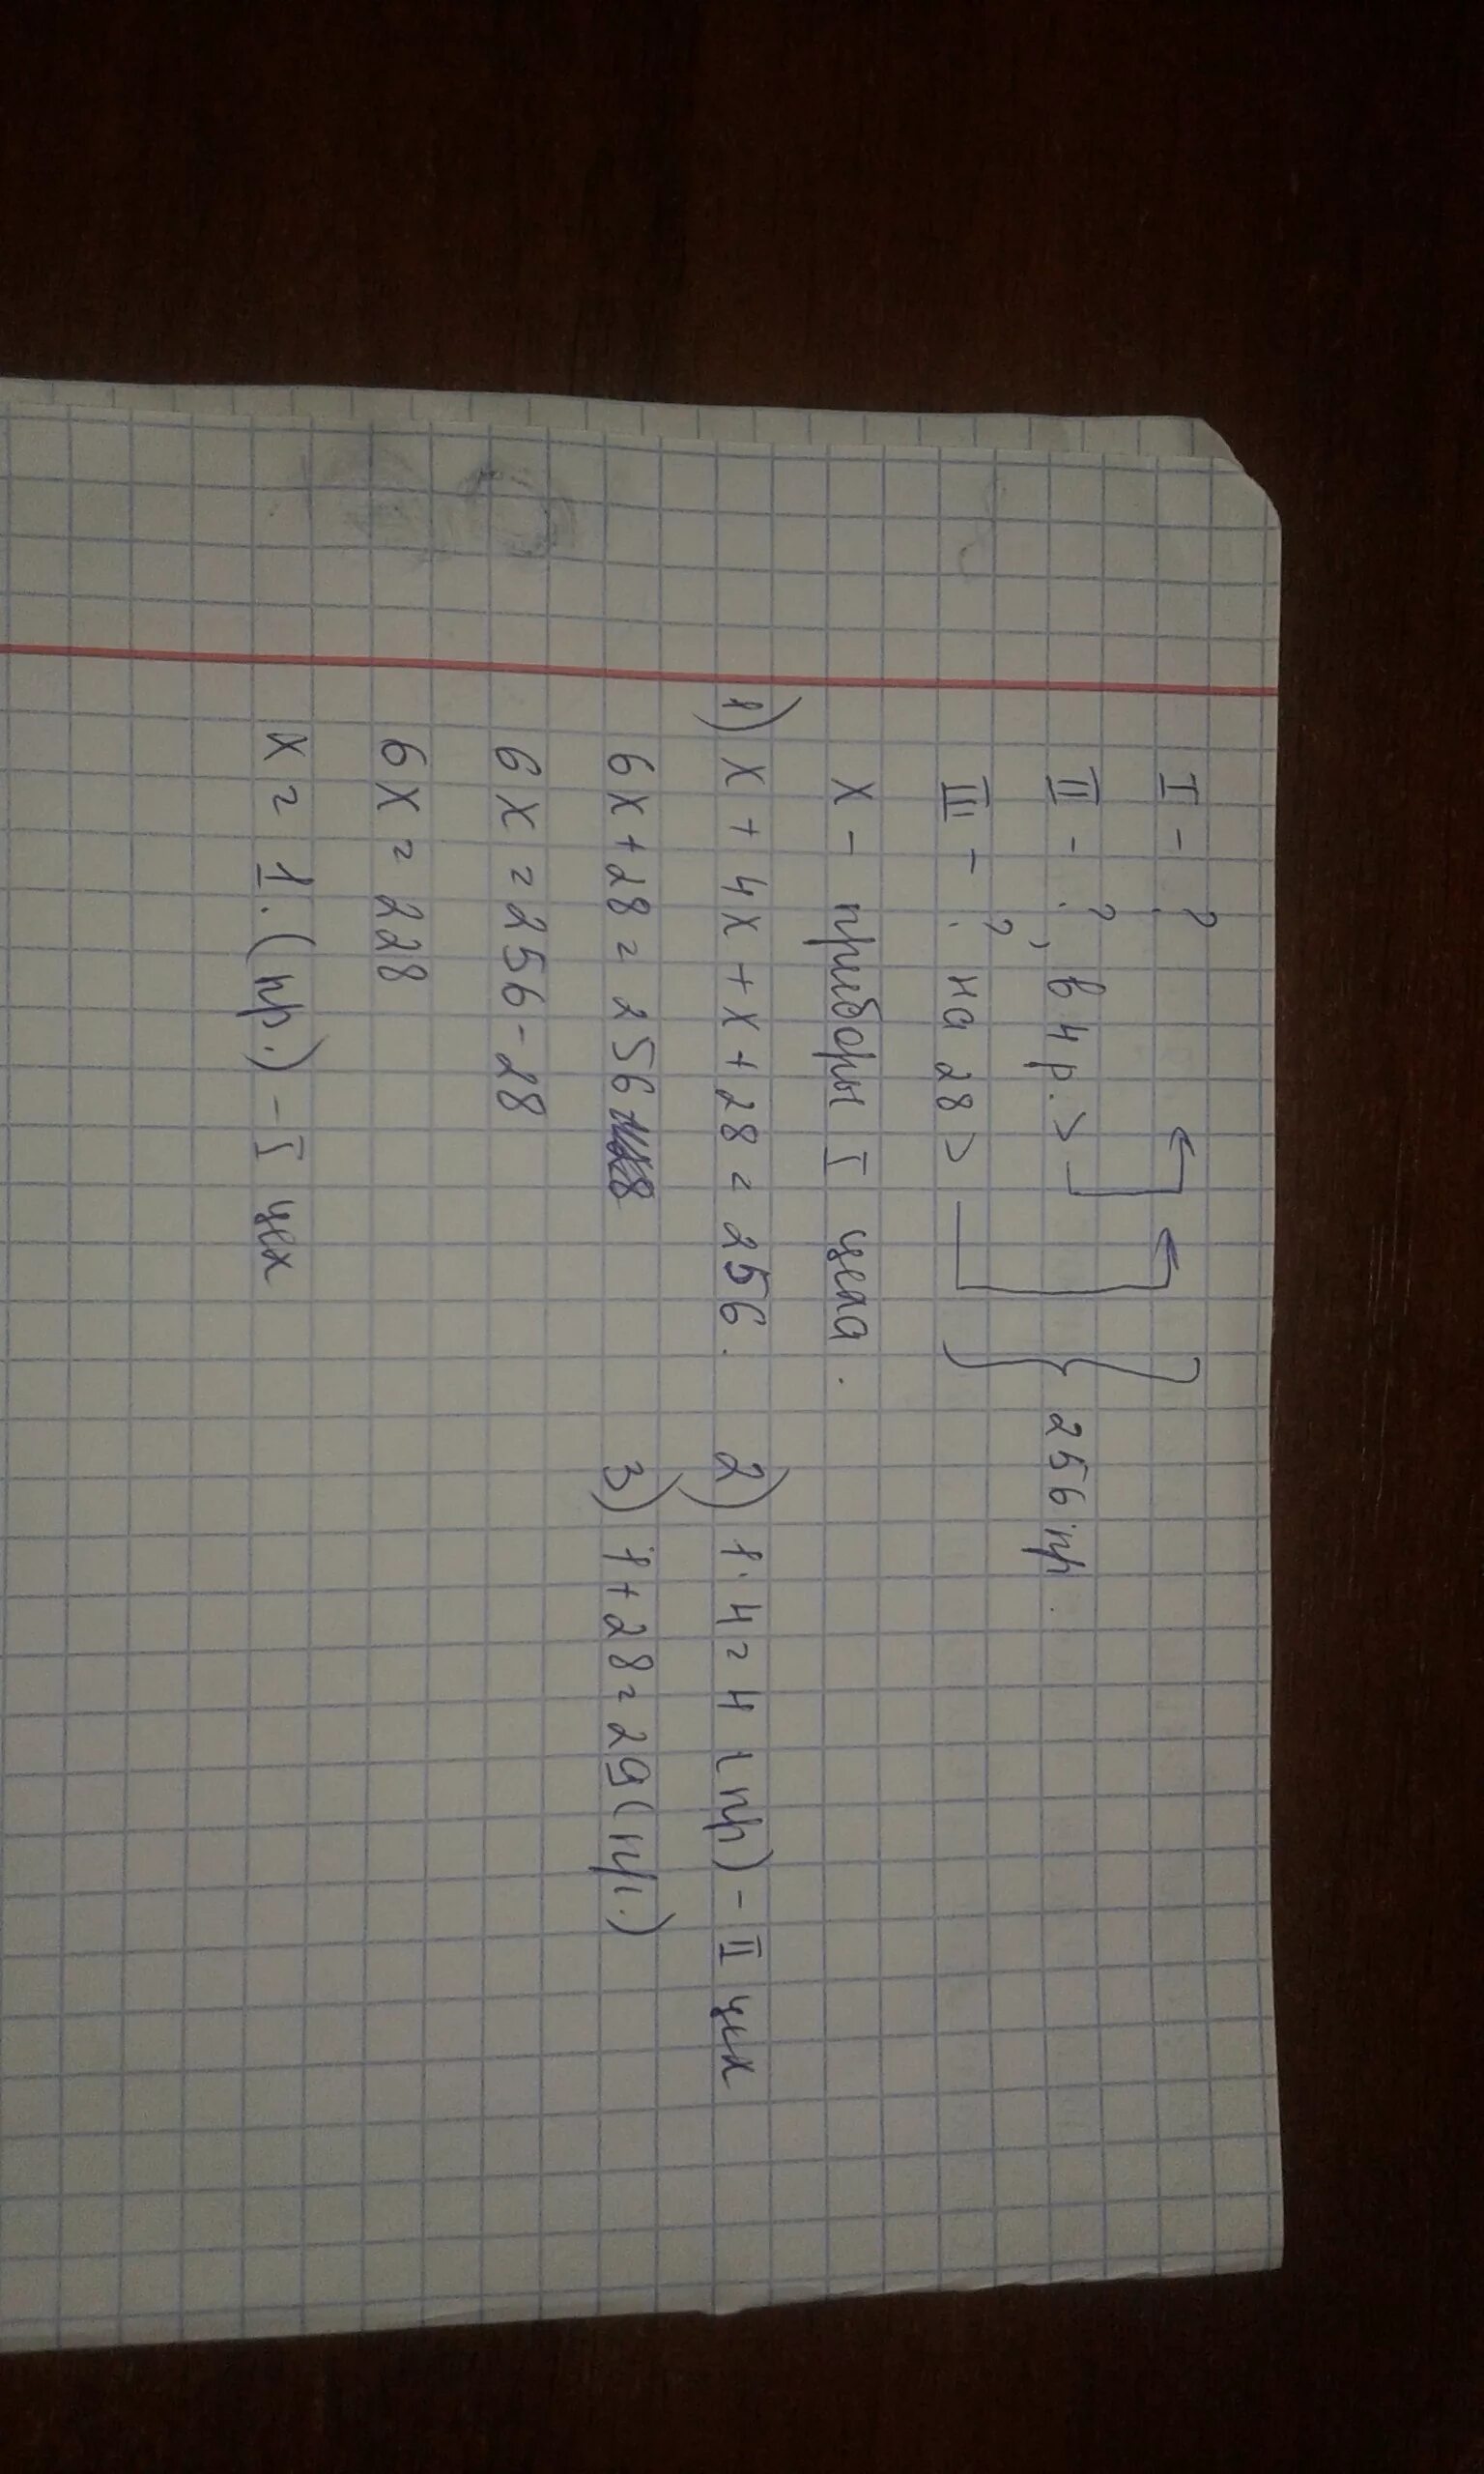 I - ?
II - ?, в 4 р. >
III - ? на 28 >
256 пр.
X - приборы I цеха.
1) X + 4X + X + 28 = 256.
6X + 28 = 256
6X = 256 - 28
6X = 228
X = 1. (пр.) - I цех
2) 1 · 4 = 4 (пр) - II цех
3) 1 + 28 = 29 (пр.)